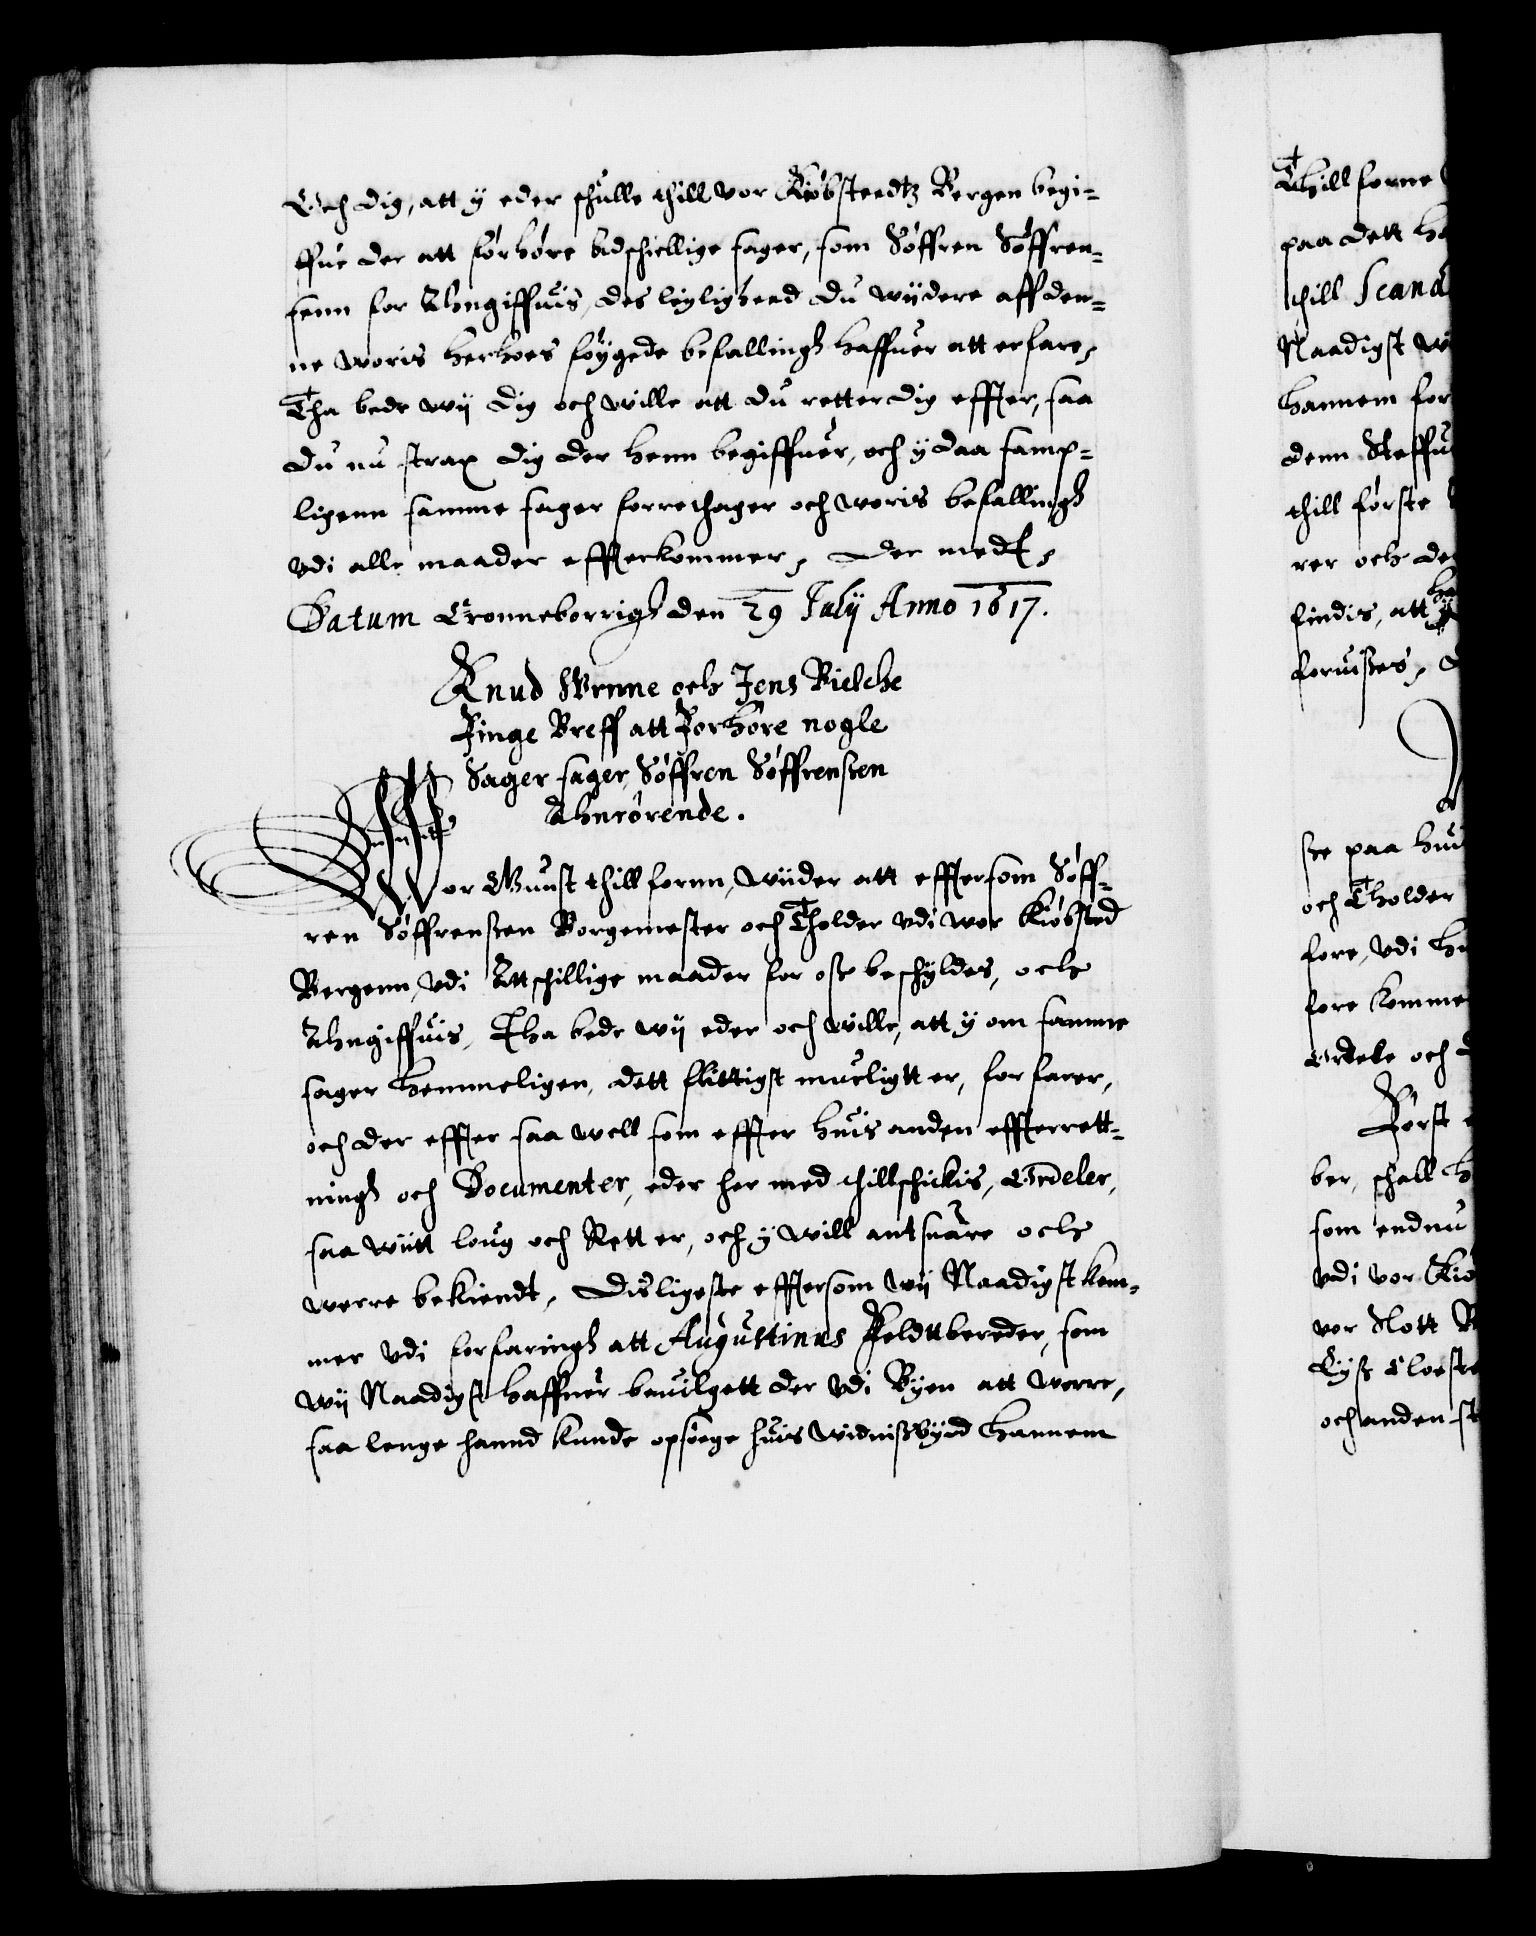 Och dig, att y eder schulle thill vor Kiøbstedtz Bergen begi-
ffue der att forhøre adschiellige sager, som Søffren Søffren-
senn for Ahngiffuis, des leyligheed du wiidere aff den-
ne woris herhoes føygede befallingh haffuer att erfare,
Tha bede wij dig och wille att du retter dig effter, saa
du nu strax dig der henn begiffuer, och y daa samp-
ligenn samme sager forrethager och woris befallingh
vdi alle maader effterkommer, Der med
Datum Cronneborrigh den 29 Julij Anno 1617.
Knud Vrnne och Jens Bielche
Finge Breff att Forhøre nogle
Sager sager, Søffren Søffrenssen
Ahnrørende.
Wor Gunst thillfornn, wiider att efftersom Søff-
ren Søffrenssen Borgemester och Tholder vdi wor Kiøbsted
Bergenn, vdi Attschillige maader for oss beschyldes, och
Ahngiffuis, Tha bede wij eder och wille, att y om samme
sager hemmeligen, dett flittigst mueligtt er, forfarer,
och der effter saa well som effter huis anden effterrett-
ningh och Documenter, eder her med thillschickis, Ordeler,
saa wiitt loug och Rett er, och y will antsuare och
werre bekiendt, Disligeste efftersom wij Naadigst kom-
mer vdi forfaringh att Augustinus Feldttbereder, som
wij Naadigst haffuer beuilgett der vdi Byen att werre,
saa lenge hannd kunde opsøege huis widnissbyrd hannem
Thill forne
paa dett
thill Scand
Naadigst
hannem for
denn
thill første
rer och
findis, att
foruisses,
ste paa
och Tholder
fore, vdi
fore komme
Ordele och
Først
ber, schall
som endnu
vdi vor
vor Slott
och anden